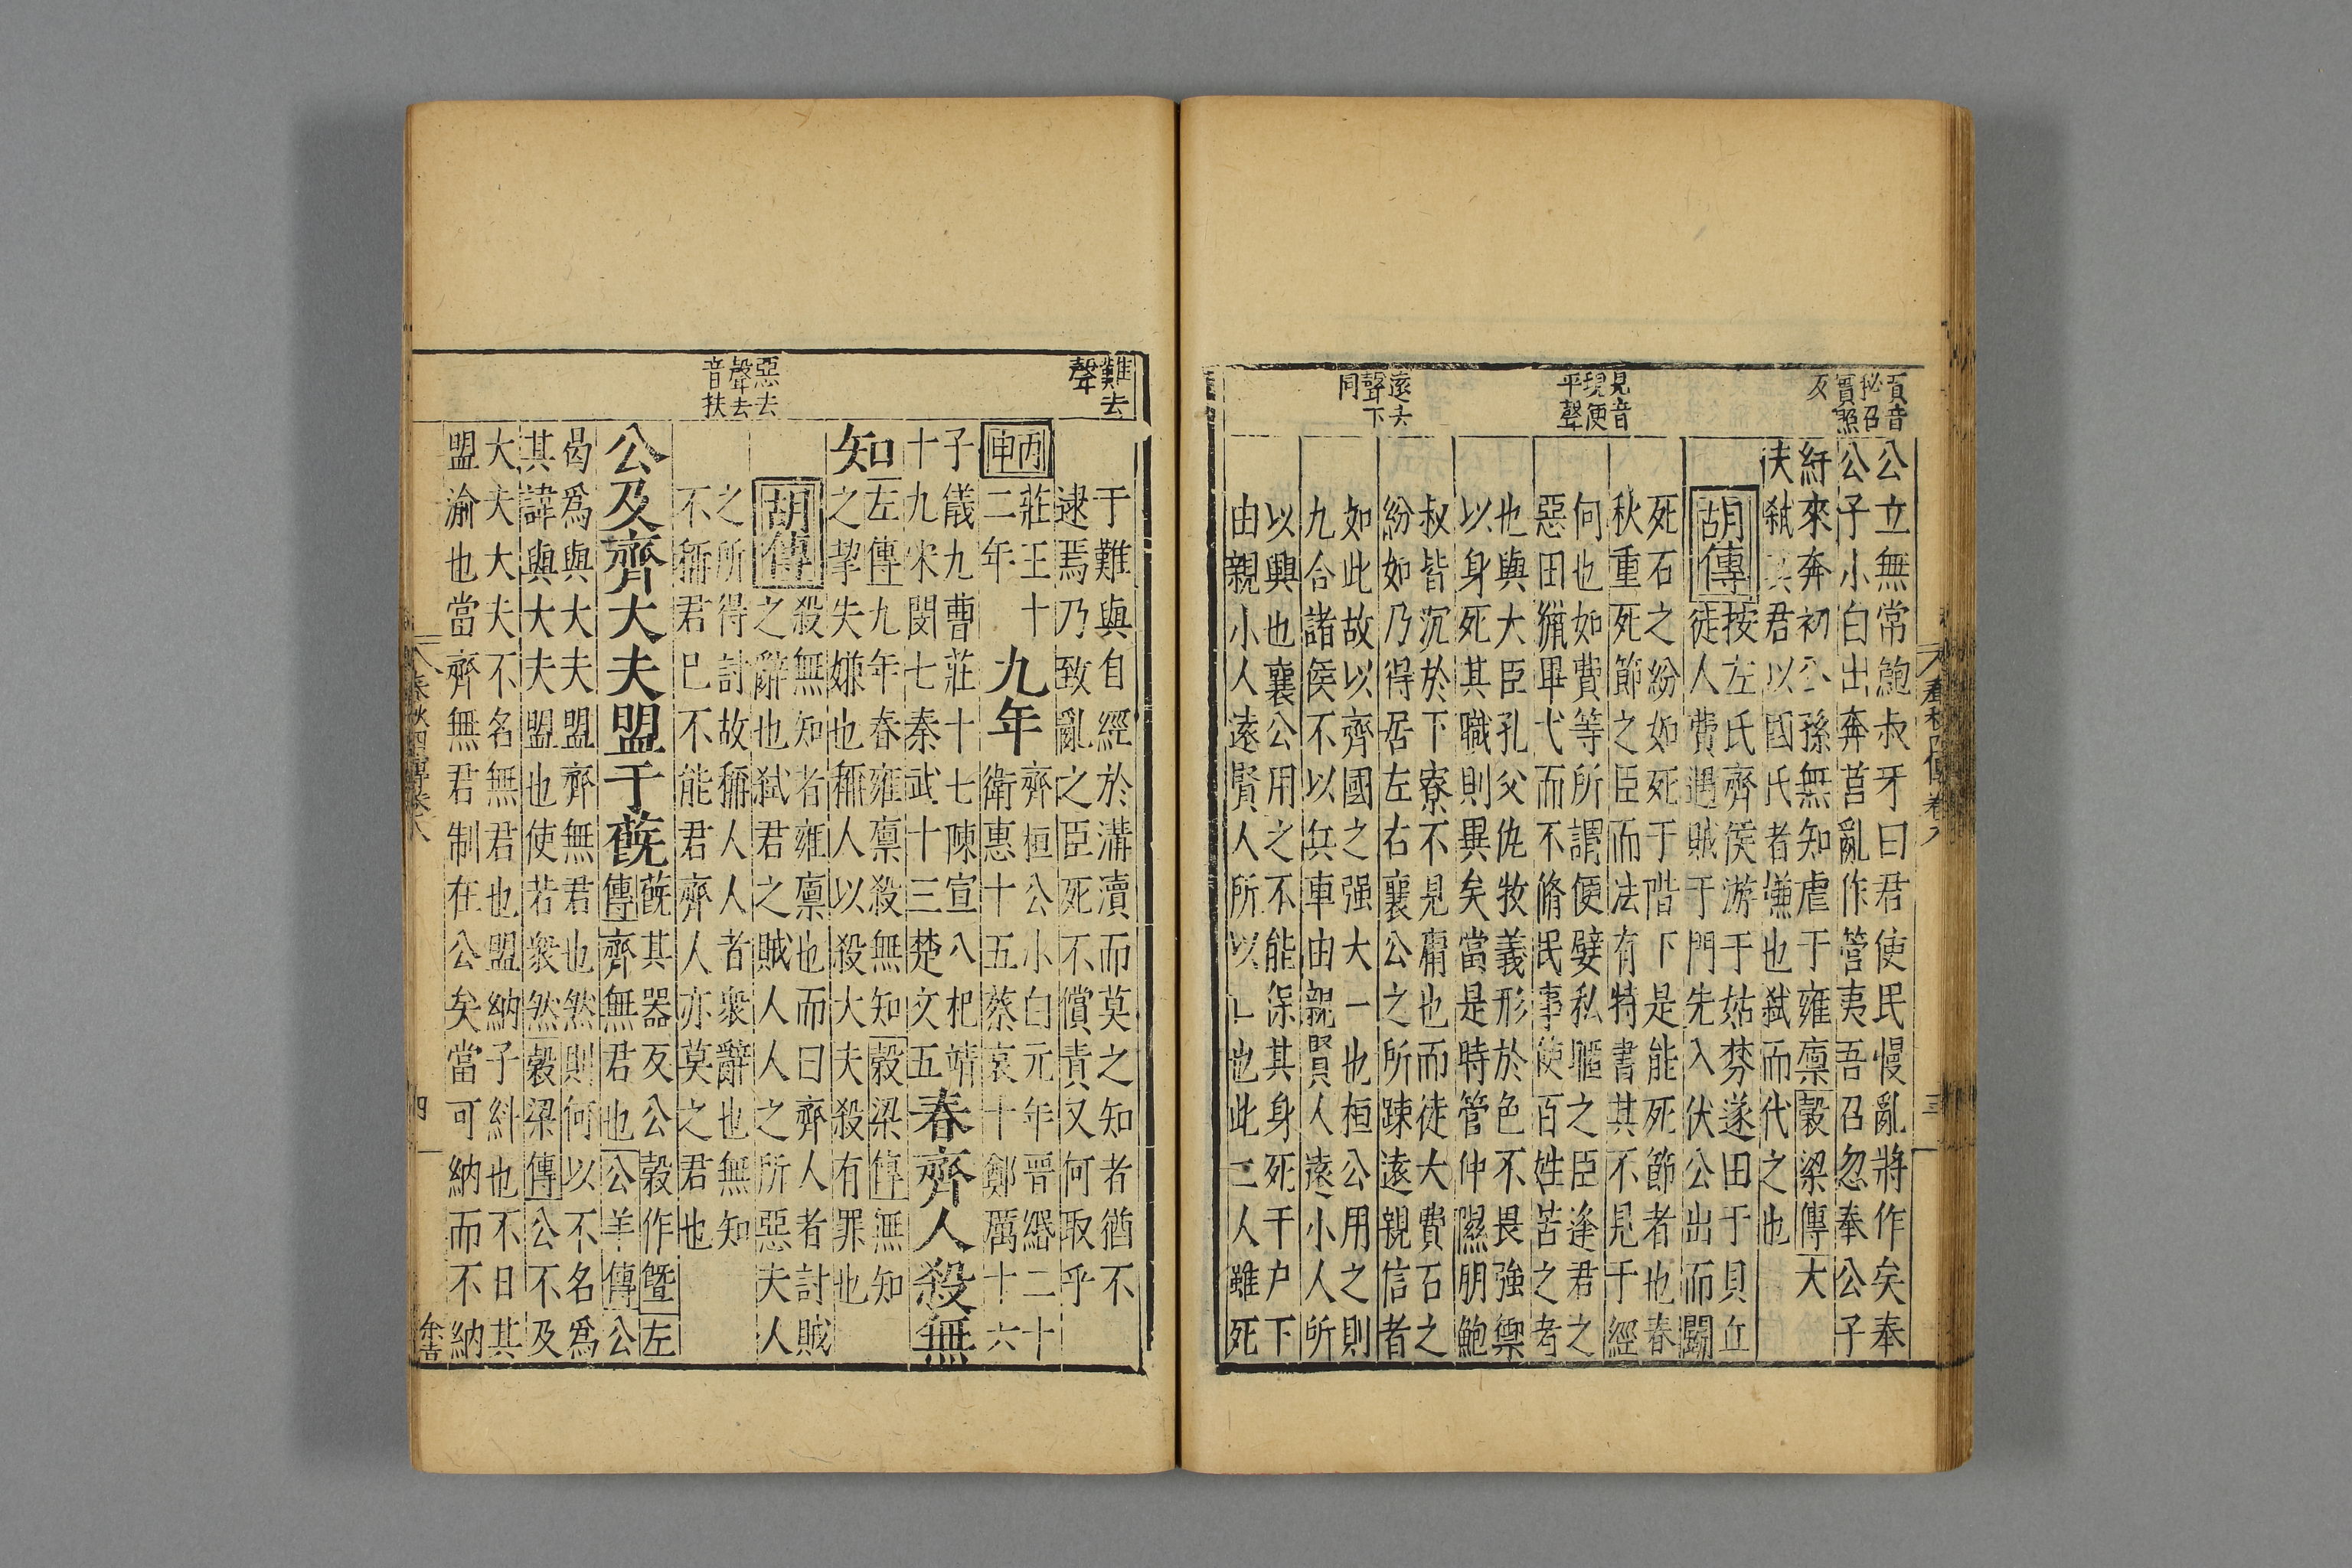 公立無常鮑叔牙曰君使民慢亂將作矣奉
公子小白出奔莒亂作管夷吾召忽奉公子
糾來奔初公孫無知虐于雍廩穀梁傳大
夫弑其君以國氏者嫌也弑而代之也
胡傳
按左氏齊侯游于姑棼遂田于貝丘
徒人費遇賊于門先入伏公出而鬬
死石之紛如死于階下是能死節者也春
秋重死節之臣而法有特書其不見于經
何也如費等所謂便嬖私暱之臣逢君之
惡田獵畢弋而不脩民事使百姓苦之者
也與大臣孔父仇牧義形於色不畏強禦
以身死其職則異矣當是時管仲隰朋鮑
叔皆沉於下寮不見庸也而徒大費石之
紛如乃得居左右襄公之所疎遠親信者
如此故以齊國之强大一也桓公用之則
九合諸侯不以兵車由親賢人遠小人所
以興也襄公用之不能保其身死于户下
由親小人遠賢人所以亡也此二人雖死
賁音
秘召
實照
反
見音
現便
平聲
遠去
聲下
同
春秋四傳卷八
三
難去
聲
惡去
聲去
音扶
于難與自經於溝瀆而莫之知者猶不
逮焉乃致亂之臣死不償責又何取乎
丙申
莊王十
二年
九年
齊桓公小白元年晉緡二十
衛惠十五蔡哀十鄭厲十六
子儀九曹莊十七陳宣八杞靖
十九宋閔七秦武十三楚文五
春齊人殺無
知
左傳九年春雍廩殺無知穀梁傳無知
之挈失嫌也稱人以殺大夫殺有罪也
胡傳
殺無知者雍廩也而曰齊人者討賊
之辭也弑君之賊人人之所惡夫人
之所得討故稱人人者衆辭也無知
不稱君已不能君齊人亦莫之君也
公及齊大夫盟于蔇
蔇其器反公穀作暨左
傳齊無君也公羊傳公
曷爲與大夫盟齊無君也然則何以不名爲
其諱與大夫盟也使若衆然穀梁傳公不及
大夫大夫不名無君也盟納子糾也不日其
盟渝也當齊無君制在公矣當可納而不納
春秋四傳卷八
四